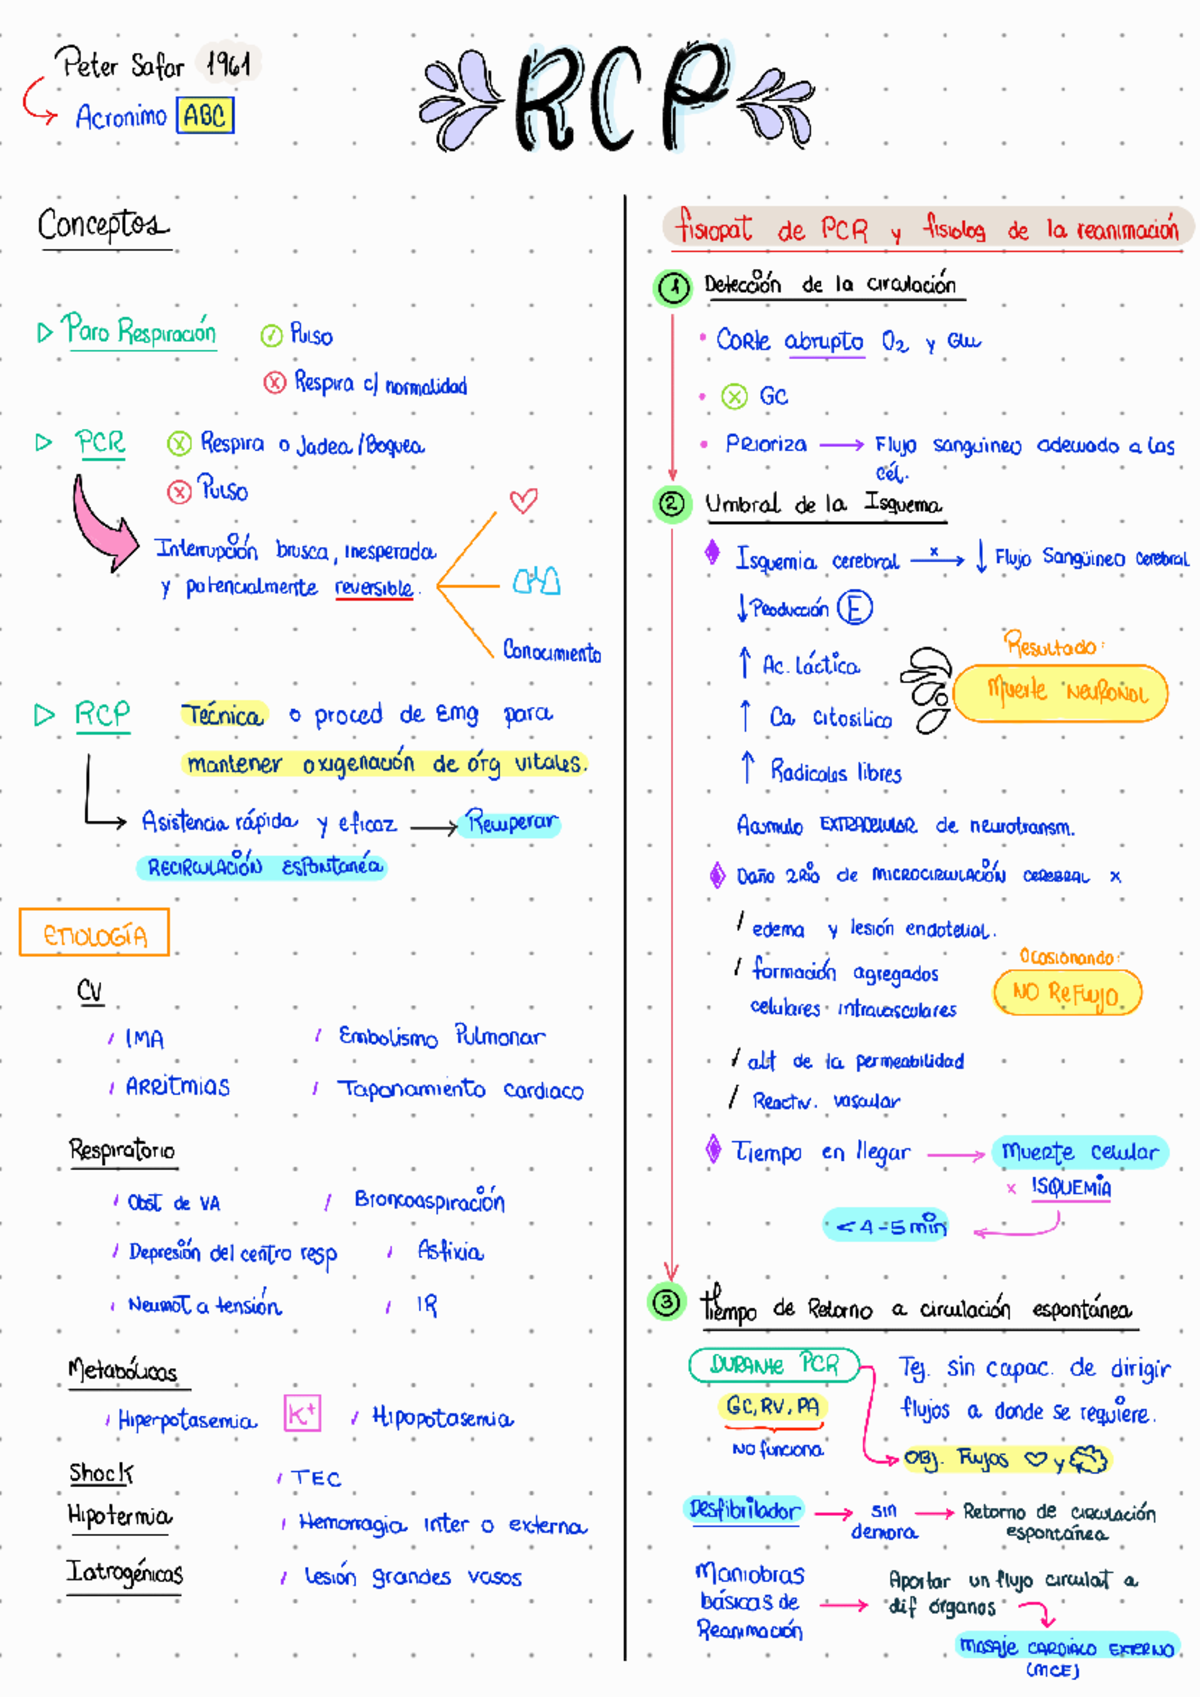 Peter Safar 1961
Acronimo ABC
RCP
Conceptos
Paro Respiración
Pulso
Respira c/ normalidad
PCR
Respira o Jadea/Boquea
Pulso
Interrupción brusca, inesperada
y potencialmente reversible.
Conocimiento
RCP Técnica o proced de Emg para
mantener oxigenación de órg vitales.
Asistencia rápida y eficaz → Recuperar
RECIRCULACIÓN ESPontanéa
ETIOLOGÍA
CV
/ IMA / Embolismo Pulmonar
/ ARRitmias / Taponamiento cardiaco
Respiratorio
/ Obst de VA / Broncoaspiración
/ Depresión del centro resp / Asfixia
/ Neumot a tensión / IR
Metabólicas
/ Hiperpotasemia K+ / Hipopotasemia
Shock / TEC
Hipotermia / Hemorragia inter o externa
Iatrogénicas / Lesión grandes vasos
fisiopat de PCR y fisiolog de la reanimación
1 Detección de la circulación
• Corte abrupto O2 y Glu
• GC
• Prioriza → Flujo sanguineo adecuado a las
cél.
2 Umbral de la Isquema
Isquemia cerebral x→ ↓ Flujo Sangüineo cerebral
↓ Producción E
↑ Ac. láctica
↑ Ca citosilico
↑ Radicales libres
Resultado:
Muerte NEURONAL
Acumulo EXTRACELULAR de neurotransm.
Daño 2RIO de MICROCIRCULACIÓN CEREBRAL x
/ edema y lesión endotelial.
/ formación agregados
celulares intravasculares
Ocasionando:
NO REFLUJO
/ alt de la permeabilidad
/ Reactiv. vascular
Tiempo en llegar → Muerte celular
x ISQUEMIA
< 4-5 min
3 Tiempo de Retorno a circulación espontánea
DURANTE PCR
GC, RV, PA
No funciona
Tej. sin capac. de dirigir
flujos a donde se requiere.
OBJ. Flujos ♡ y
Desfibrilador → sin demora → Retorno de circulación
espontánea
Maniobras
básicas de
Reanimación
→ Aportar un flujo circulat a
dif órganos
Masaje CARDIACO EXTERNO
(MCE)